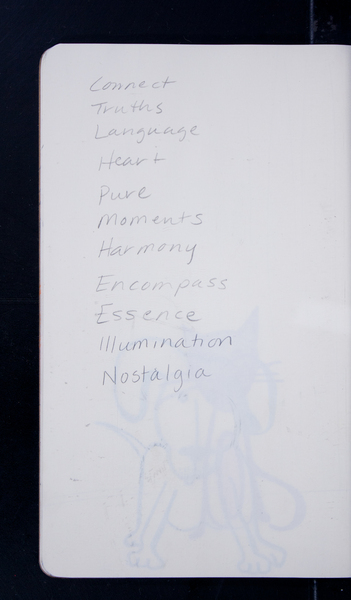 Connect
Truths
Language
Heart
Pure
Moments
Harmony
Encompass
Essence
Illumination
Nostalgia